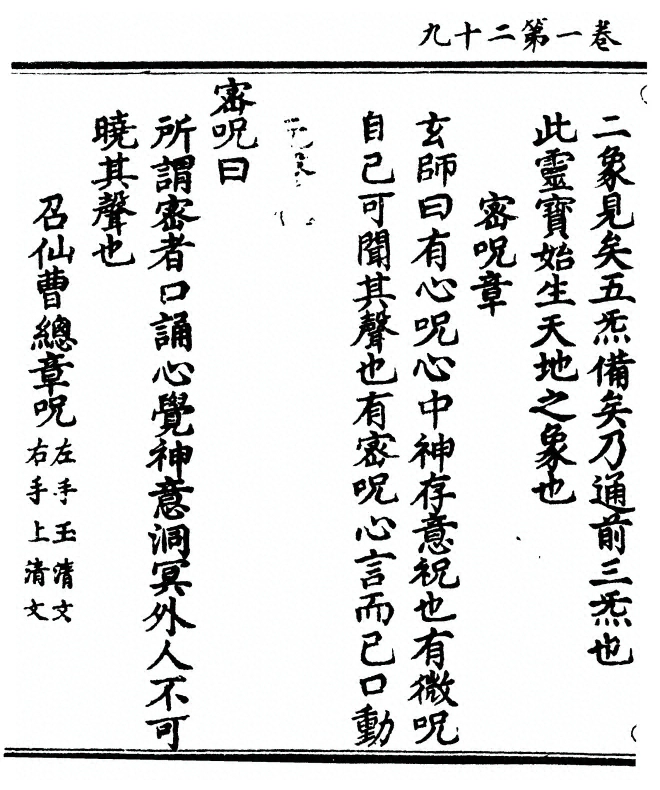 卷一第二十九
二象見矣五炁備矣乃通前三炁也
此靈寶始生天地之象也
密呪章
玄師曰有心呪心中神存意祝也有微呪
自己可聞其聲也有密呪心言而已口動
密呪曰
所謂密者口誦心覺神意洞冥外人不可
曉其聲也
召仙曹總章呪
左手玉清文
右手上清文